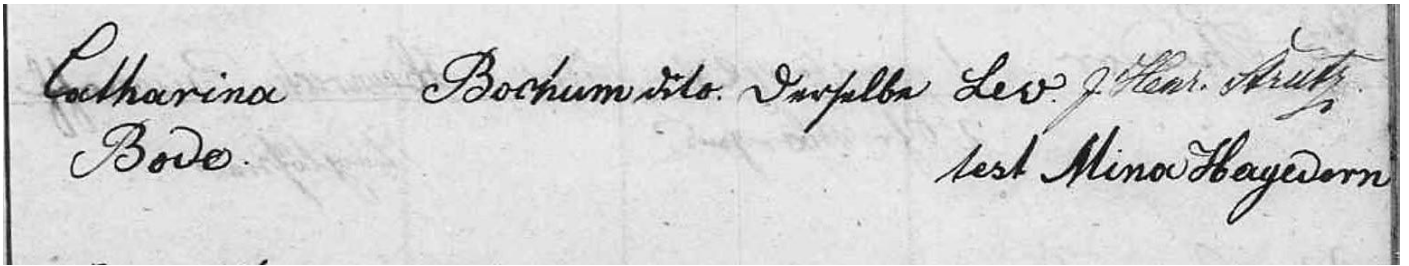 Catharina Bochum dito. Derselbe Lev. J Henr. Strutz
Bode. test Mina Hagedorn